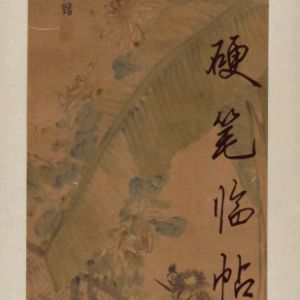 硬笔临帖